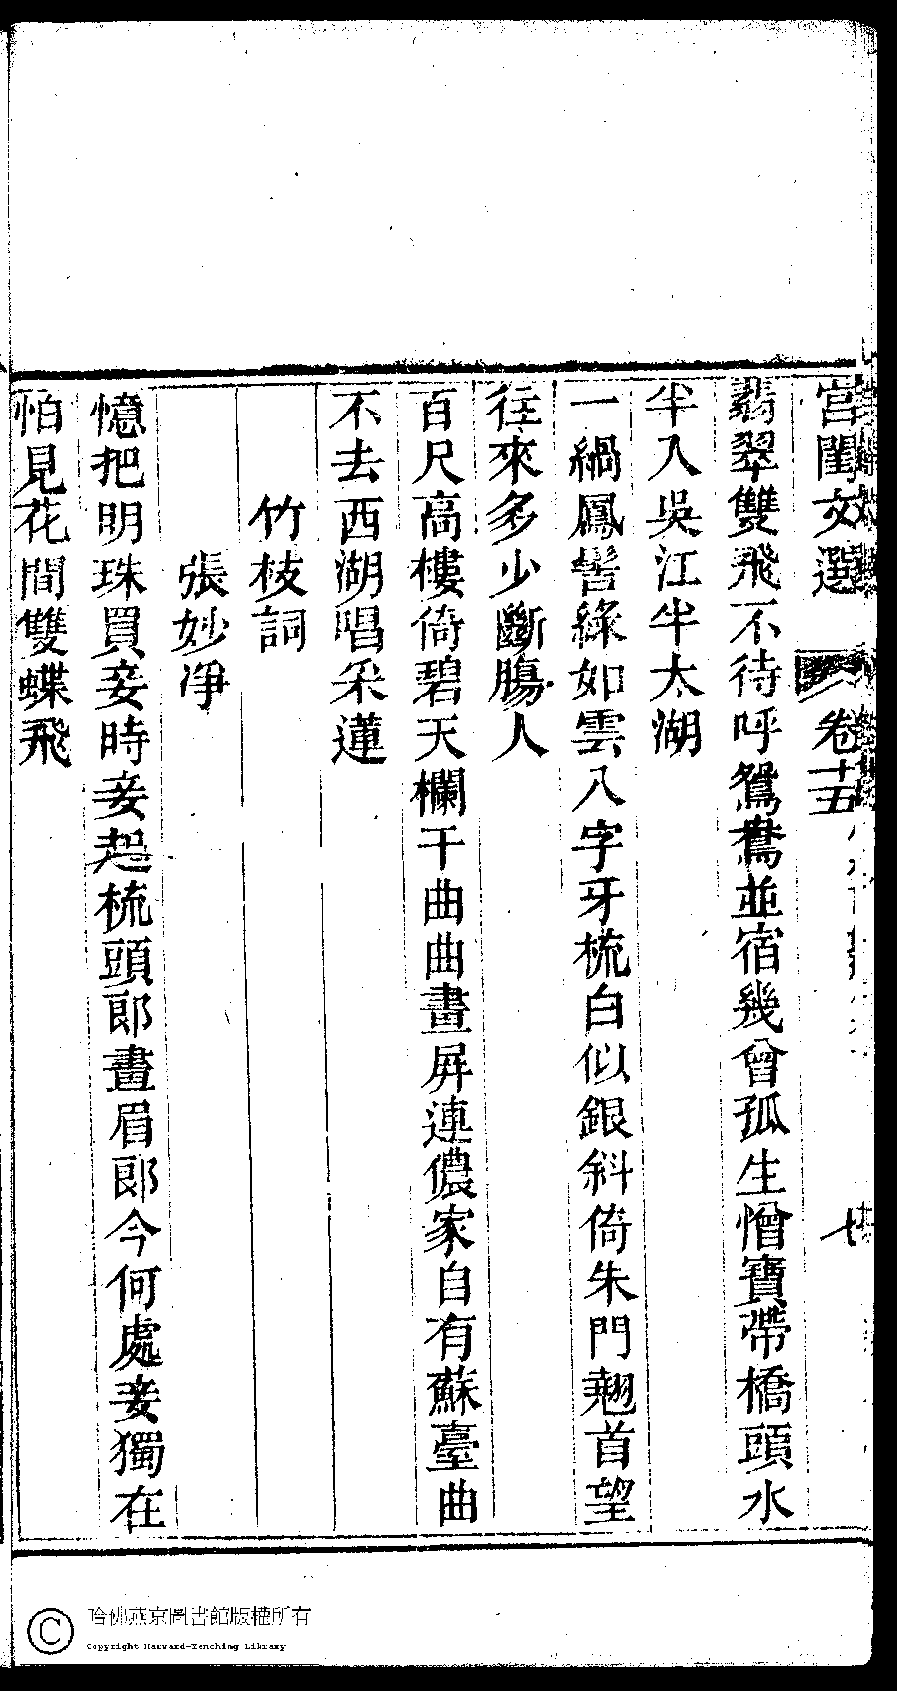 宮閨文選 卷十五 七
翡翠雙飛不待呼鴛鴦並宿幾曾孤生憎寶帶橋頭水
半入吳江半太湖
一綹鳳髻綠如雲八字牙梳白似銀斜倚朱門翹首望
往來多少斷腸人
百尺高樓倚碧天欄干曲曲畫屏連儂家自有蘇臺曲
不去西湖唱采蓮
竹枝詞
張妙淨
憶把明珠買妾時妾起梳頭郎畫眉郎今何處妾獨在
怕見花間雙蝶飛
哈佛燕京圖書館版權所有
Copyright Harvard-Yenching Library